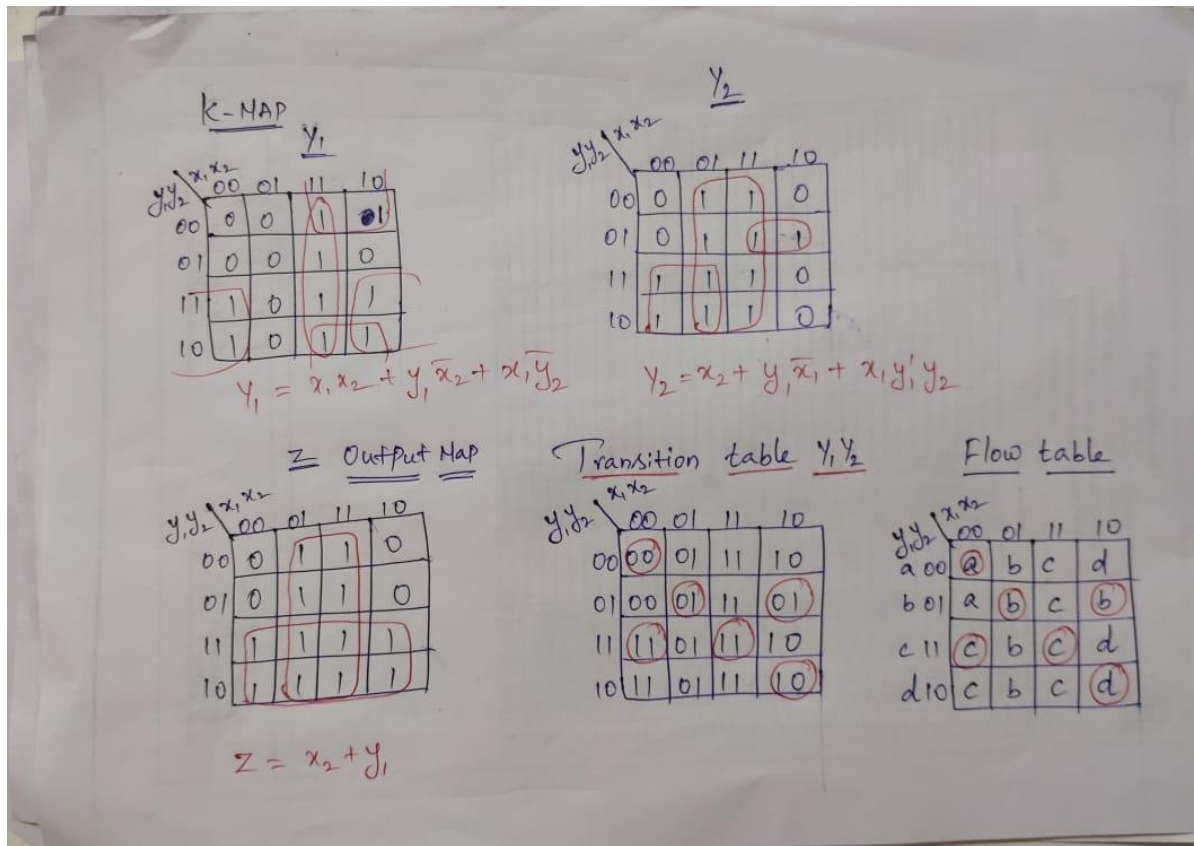 K-MAP
Y₁
y₁y₂ x₁x₂
00 01 11 10
00 0 0 1 1
01 0 0 1 0
11 1 0 1 1
10 1 0 1 1
Y₁ = x₁x₂ + y₁x̄₂ + x₁ȳ₂
Y₂
y₁y₂ x₁x₂
00 01 11 10
00 0 1 1 0
01 0 1 1 1
11 1 1 1 0
10 1 1 1 0
Y₂ = x₂ + y₁x̄₁ + x₁y₁'y₂
Z Output Map
y₁y₂ x₁x₂
00 01 11 10
00 0 1 1 0
01 0 1 1 0
11 1 1 1 1
10 1 1 1 1
Z = x₂ + y₁
Transition table Y₁Y₂
y₁y₂ x₁x₂
00 01 11 10
00 00 01 11 10
01 00 01 11 01
11 11 01 11 10
10 11 01 11 10
Flow table
y₁y₂ x₁x₂
00 01 11 10
a 00 a b c d
b 01 a b c b
c 11 c b c d
d 10 c b c d